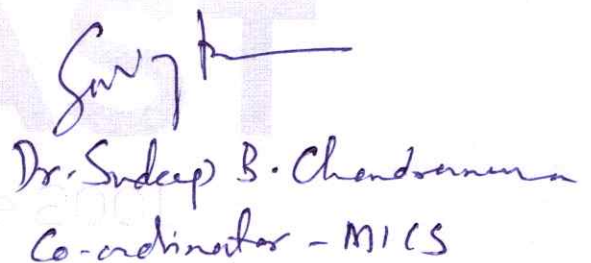 Dr. Sudeep B. Chandramana
Co-ordinator - MICS